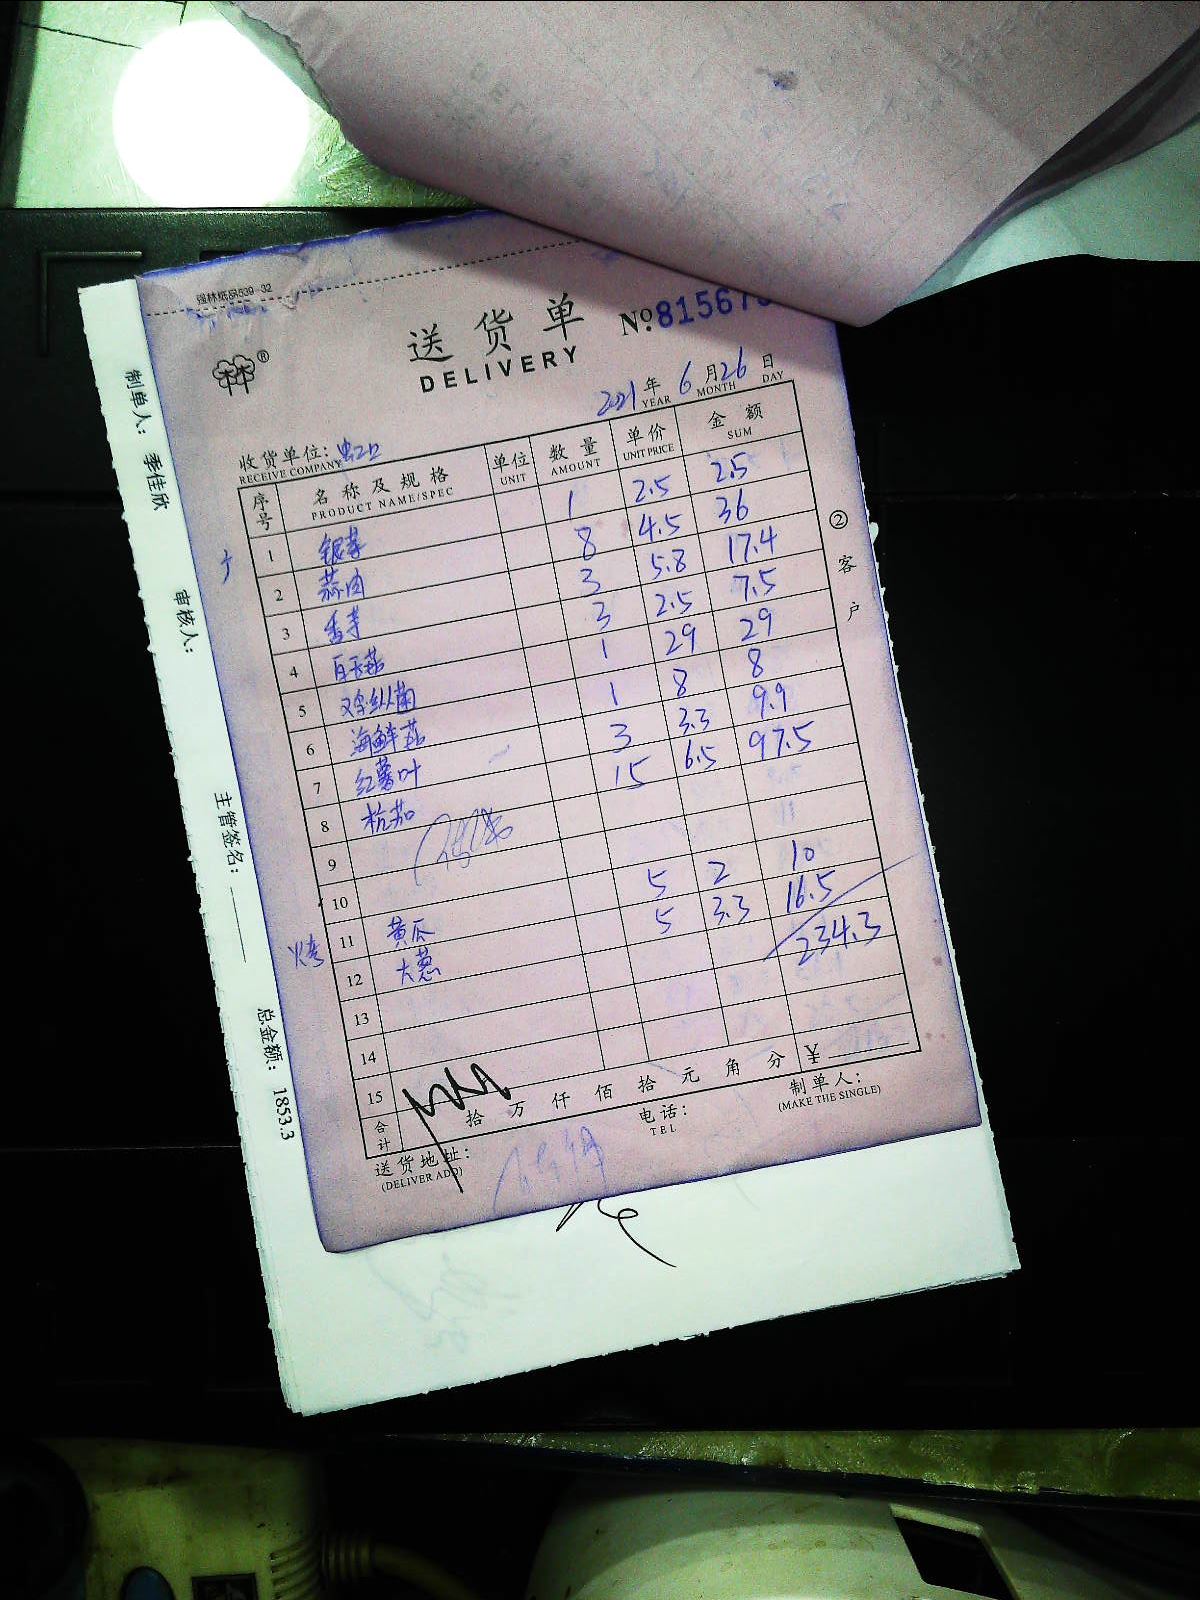 强林纸品539-32
送货单
DELIVERY
№ 81567
2021 年 6 月 26 日
YEAR MONTH DAY
收货单位: 虹口
RECEIVE COMPANY
序号 名称及规格 单位 数量 单价 金额
PRODUCT NAME/SPEC UNIT AMOUNT UNIT PRICE SUM
1 银芽 1 2.5 2.5
2 蒜肉 8 4.5 36
3 香芋 3 5.8 17.4
4 白玉菇 3 2.5 7.5
5 鸡纵菌 1 29 29
6 海鲜菇 1 8 8
7 红薯叶 3 3.3 9.9
8 杭茄 15 6.5 97.5
9
10
烤
11 黄瓜 5 2 10
12 大葱 5 3.3 16.5
13 234.3
14
15
合计 拾 万 仟 佰 拾 元 角 分 ¥
送货地址: 电话: 制单人:
(DELIVER ADD) TEL (MAKE THE SINGLE)
② 客户
制单人: 季佳欣 审核人: 主管签名: 总金额: 1853.3